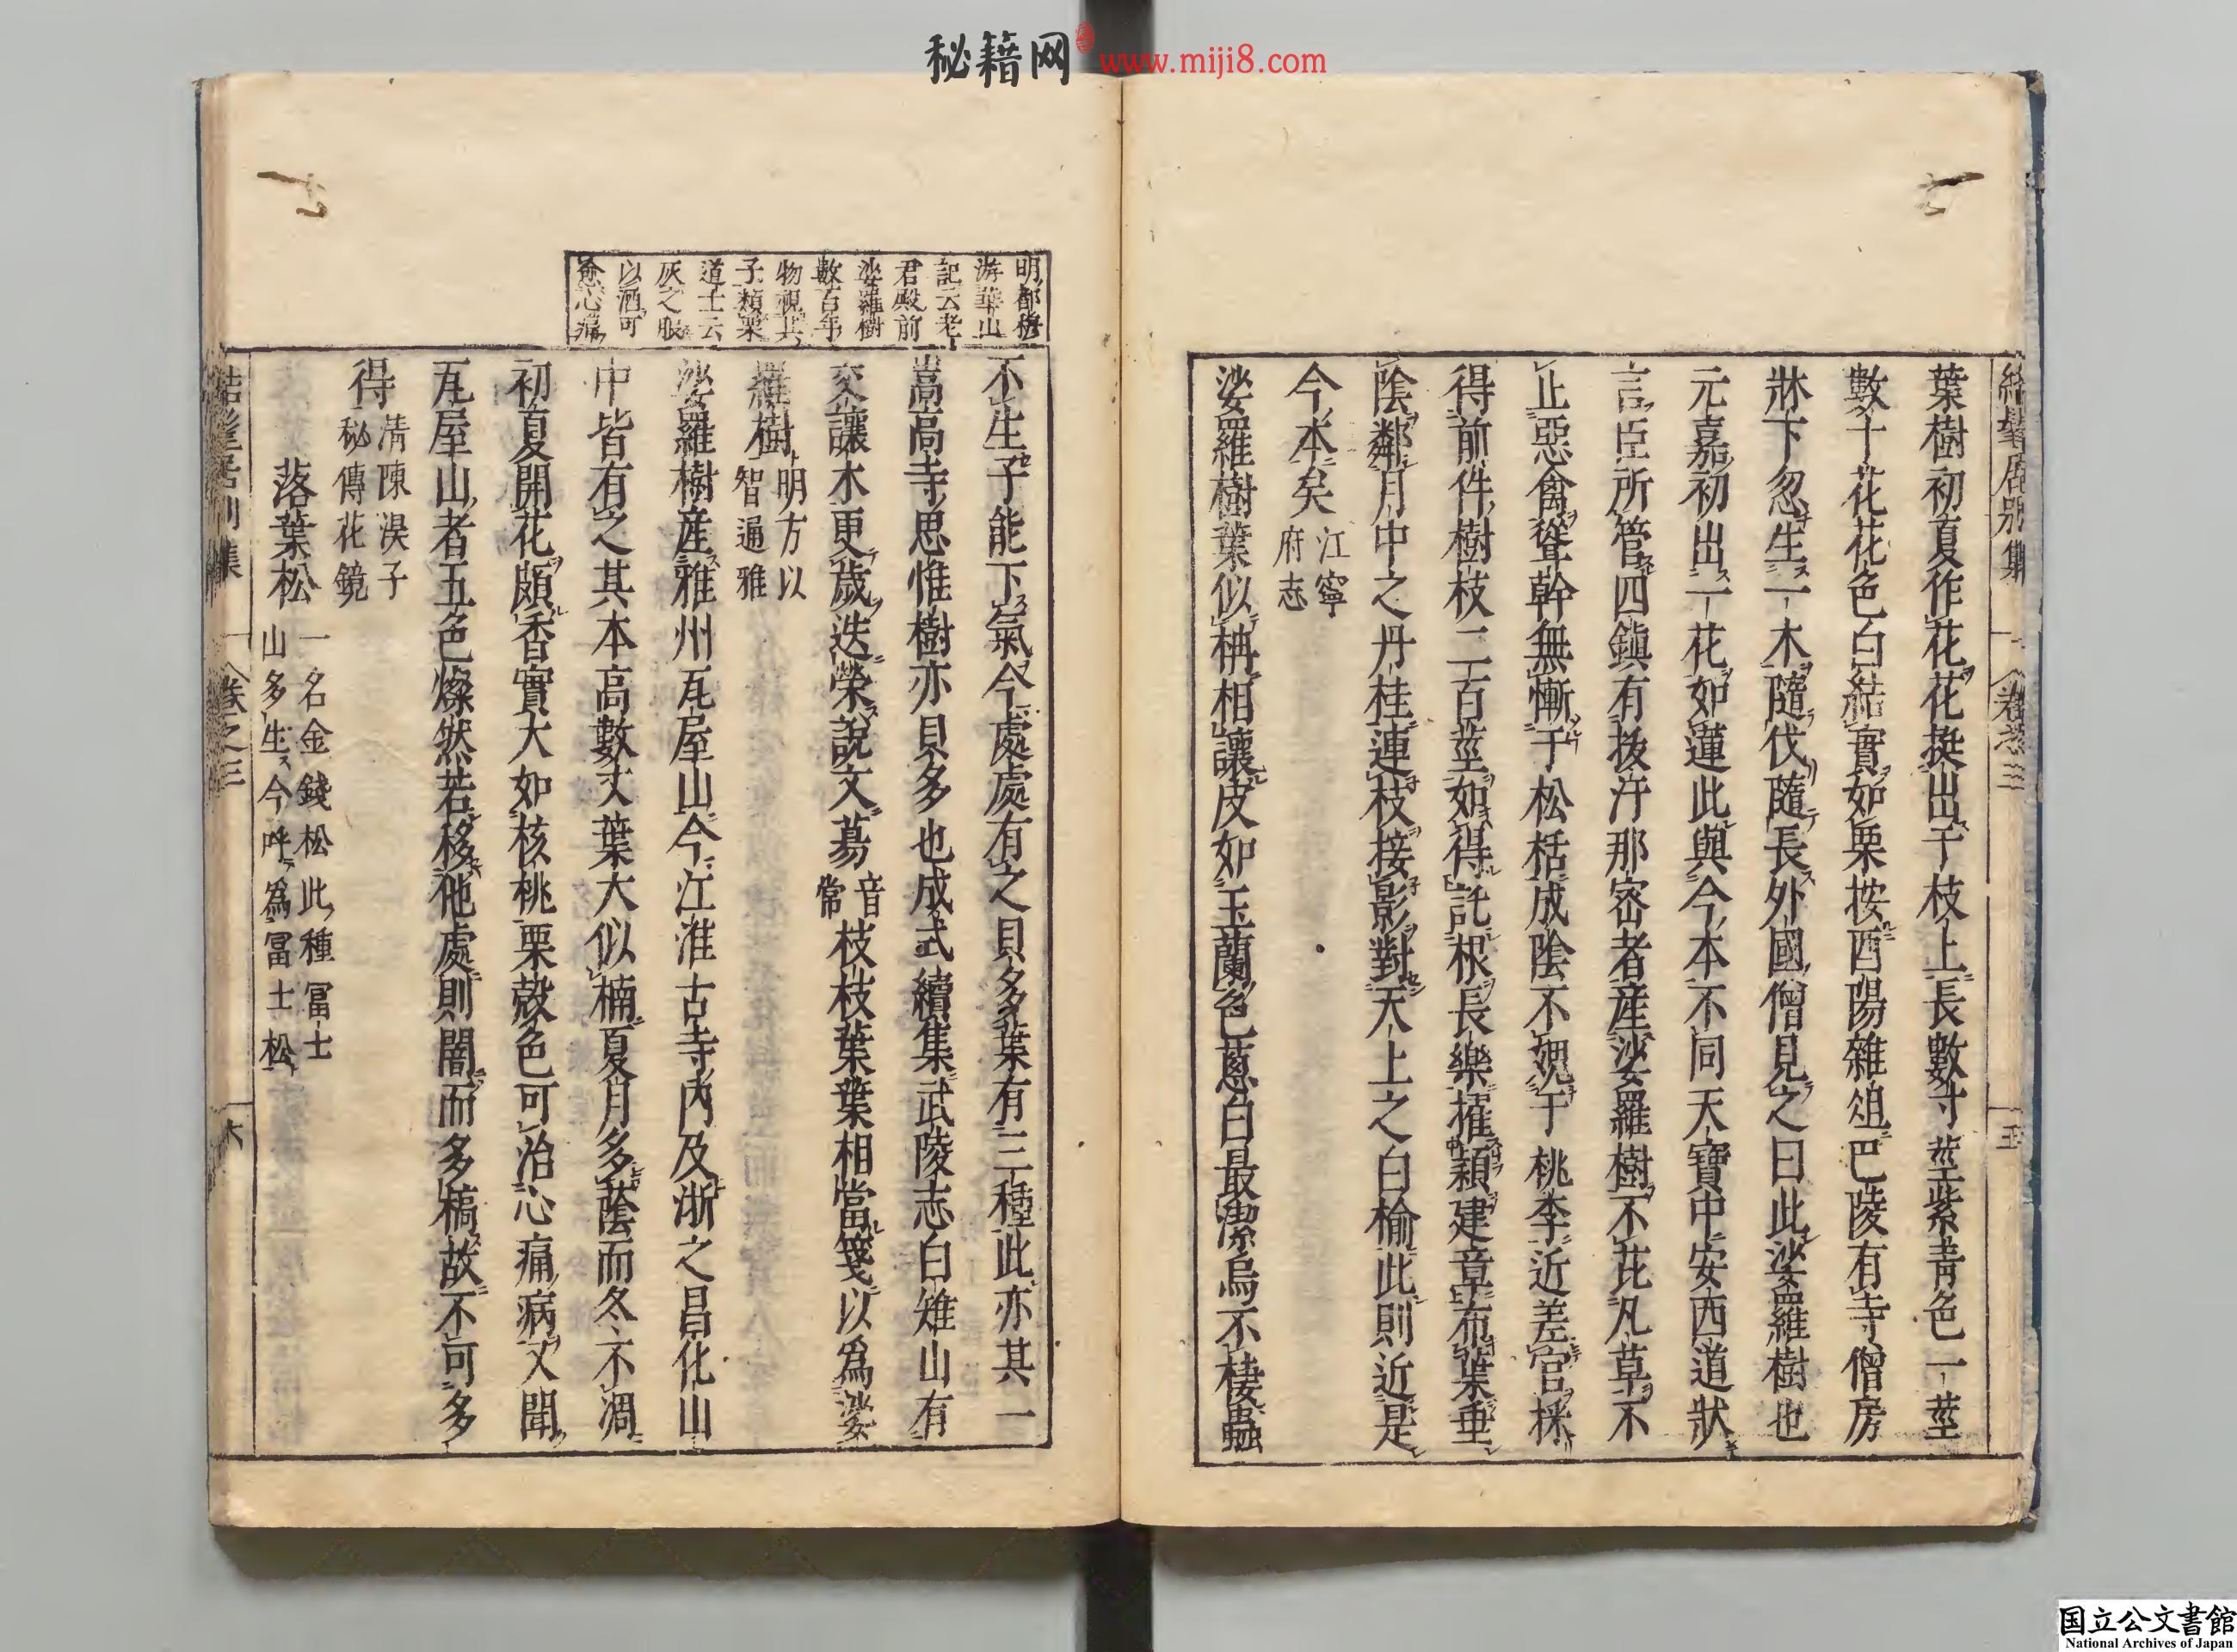 秘籍网 www.miji8.com
結髦居別集 卷之三 五
葉樹初夏作花花挺出于枝上長數寸莖紫青色一莖
數十花花色白結實如栗按酉陽雜俎巴陵有寺僧房
牀下忽生一木隨伐隨長外國僧見之曰此娑羅樹也
元嘉初出一花如蓮此與今本不同天寶中安西道狀
言臣所管四鎮有拔汗那密者產娑羅樹不芘凡草不
止惡禽聳幹無慚于松栝成陰不媿于桃李近差官採
得前件樹枝二百莖如得託根長樂擢穎建章布葉垂
陰鄰月中之丹桂連枝接影對天上之白榆此則近是
今本矣 江寧
府志
娑羅樹葉似枏相讓皮如玉蘭色蔥白最潔烏不棲蟲
明都穆
游華山
記云老
君殿前
娑羅樹
數百年
物視其
子類栗
道士云
灰之服
以酒可
愈心痛
不生子能下氣今處處有之貝多葉有三種此亦其一
嵩高寺思惟樹亦貝多也成式續集武陵志白雉山有
交讓木更歲迭榮說文葛 音
常 枝枝葉葉相當箋以爲娑
羅樹 明方以
智通雅
娑羅樹產雅州瓦屋山今江淮古寺內及浙之昌化山
中皆有之其本高數丈葉大似楠夏月多蔭而冬不凋
初夏開花頗香實大如核桃栗殼色可治心痛病又聞
瓦屋山者五色燦然若移他處則闇而多槁故不可多
得 清陳淏子
秘傳花鏡
落葉松 一名金錢松此種冨士
山多生今呼爲冨士松
結髦居別集 卷之三 六
国立公文書館
National Archives of Japan